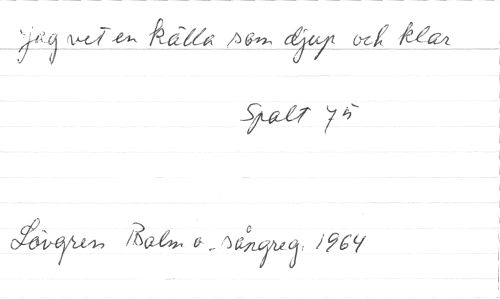 jag vet en källa som djup och klar
Spalt 75
Lövgren Psalm o. sångreg. 1964